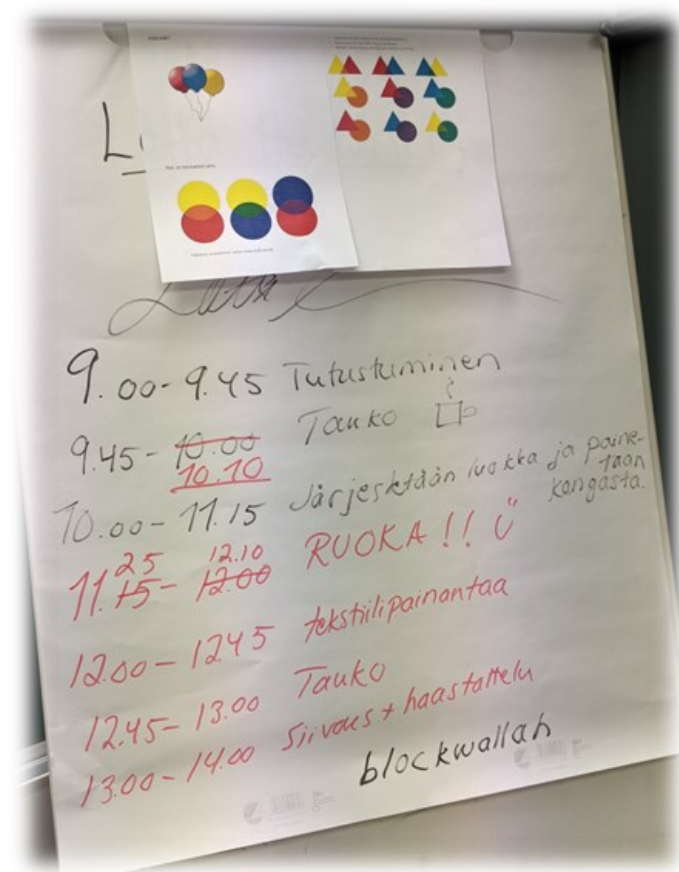 9.00-9.45 Tutustuminen
9.45-10.00 Tauko
10.10
10.00-11.15 Järjesktään luokka ja paine-
taan
kangasta.
25 12.10
11.15-12.00 RUOKA!!
12.00-1245 tekstiilipainantaa
12.45-13.00 Tauko
13.00-14.00 Siivous + haastattelu
blockwallah